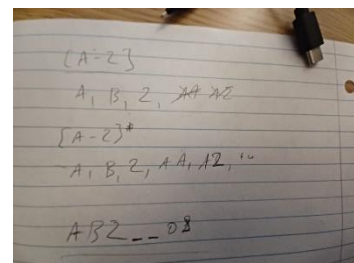 [A-Z]
A, B, Z, ~~AA~~ ~~AZ~~
[A-Z]*
A, B, Z, AA, AZ, ...
ABZ__08